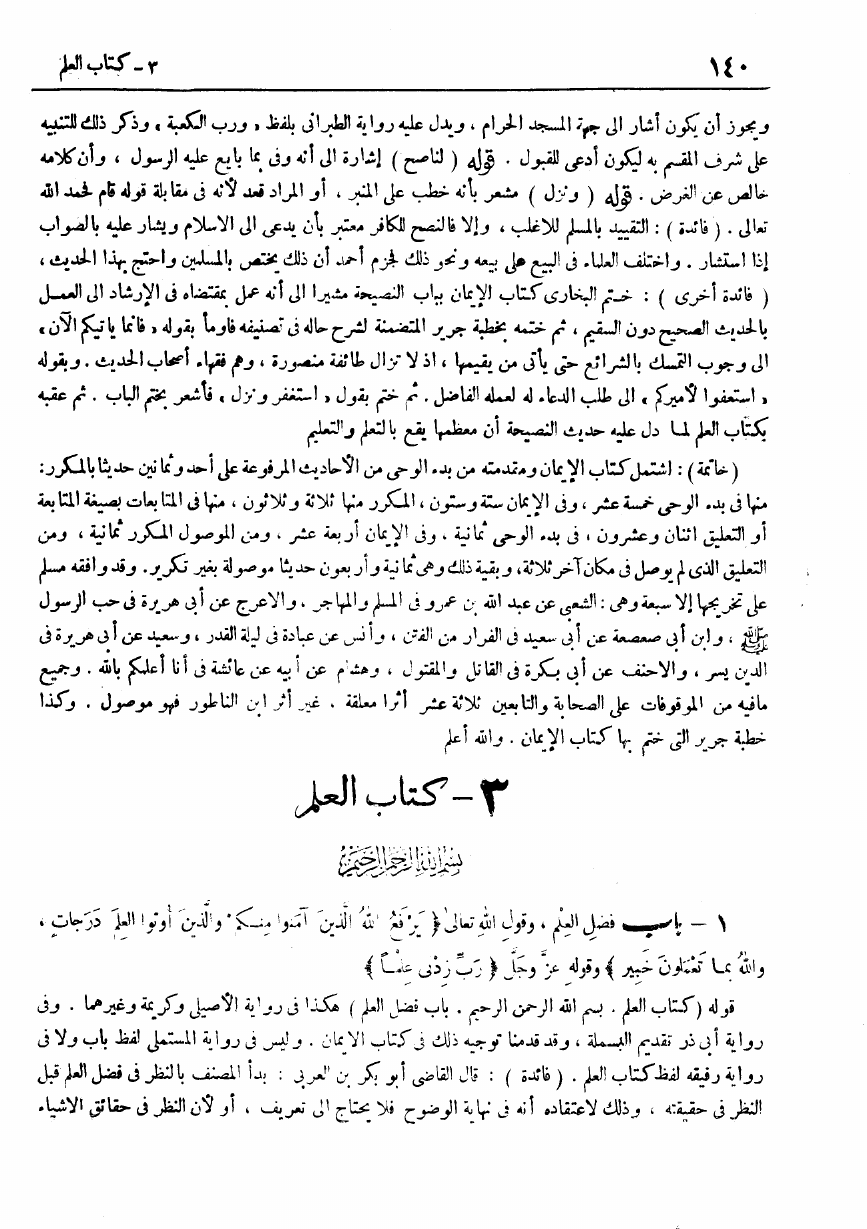 ١٤٠
٣ - كتاب العلم
ويجوز أن يكون أشار الى جهة المسجد الحرام ، ويدل عليه رواية الطبرانى بلفظ « ورب الكعبة » وذكر ذلك للتنبيه
على شرف المقسم به ليكون أدعى للقبول . قوله ( لناصح ) إشارة الى أنه وفى بما بايع عليه الرسول ، وأن كلامه
خالص عن الغرض . قوله ( ونزل ) مشعر بأنه خطب على المنبر ، أو المراد قعد لأنه فى مقابلة قوله قام فحمد الله
تعالى . ( فائدة ) : التقييد بالمسلم للاغلب ، وإلا فالنصح للكافر معتبر بأن يدعى الى الاسلام ويشار عليه بالصواب
إذا استشار . واختلف العلماء فى البيع على بيعه ونحو ذلك فجزم أحمد أن ذلك يختص بالمسلمين واحتج بهذا الحديث ،
( فائدة أخرى ) : ختم البخارى كتاب الإيمان بباب النصيحة مشيرا الى أنه عمل بمقتضاه فى الإرشاد الى العمل
بالحديث الصحيح دون السقيم ، ثم ختمه بخطبة جرير المتضمنة لشرح حاله فى تصنيفه فاومأ بقوله « فانما ياتيكم الآن »
الى وجوب التمسك بالشرائع حتى يأتى من يقيمها ، اذ لا تزال طائفة منصورة ، وهم فقهاء أصحاب الحديث . وبقوله
« استعفوا لأميركم » الى طلب الدعاء له لعمله الفاضل . ثم ختم بقول « استغفر ونزل » فأشعر بختم الباب . ثم عقبه
بكتاب العلم لما دل عليه حديث النصيحة أن معظمها يقع بالتعلم والتعليم
( خاتمة ) : اشتمل كتاب الإيمان ومقدمته من بدء الوحى من الأحاديث المرفوعة على أحد وثمانين حديثا بالمكرر :
منها فى بدء الوحى خمسة عشر ، وفى الإيمان ستة وستون ، المكرر منها ثلاثة وثلاثون ، منها فى المتابعات بصيغة المتابعة
أو التعليق اثنان وعشرون ، فى بدء الوحى ثمانية . وفى الإيمان أربعة عشر . ومن الموصول المكرر ثمانية ، ومن
التعليق الذى لم يوصل فى مكان آخر ثلاثة، وبقية ذلك وهى ثمانية وأربعون حديثا موصولة بغير تكرير. وقد وافقه مسلم
على تخريجها إلا سبعة وهى : الشعبى عن عبد الله بن عمرو فى المسلم والمهاجر . والاعرج عن أبى هريرة فى حب الرسول
ﷺ ، وابن أبى صعصعة عن أبى سعيد فى الفرار من الفتن ، وأنس عن عبادة فى ليلة القدر ، وسعيد عن أبى هريرة فى
الدين يسر ، والاحنف عن أبى بكرة فى القاتل والمقتول ، وهشام عن أبيه عن عائشة فى أنا أعلمكم بالله . وجميع
مافيه من الموقوفات على الصحابة والتابعين ثلاثة عشر أثرا معلقة . غير أثر ابن الناطور فهو موصول . وكذا
خطبة جرير التى ختم بها كتاب الإيمان . والله أعلم
٣ - كتاب العلم
بسم الله الرحمن الرحيم
١ - باب فضلِ العِلْم ، وقولِ اللهِ تعالىٰ ﴿ يَرْفَعُ اللهُ الَّذينَ آمَنوا مِنكم والَّذينَ أوتوا العِلمَ دَرَجاتٍ ،
واللهُ بما تَعْمَلونَ خَبير ﴾ وقولهِ عزَّ وجَلَّ ﴿ رَبِّ زِدْنى عِلْماً ﴾
قوله ( كتاب العلم . بسم الله الرحمن الرحيم . باب فضل العلم ) هكذا فى رواية الأصيلى وكريمة وغيرهما . وفى
رواية أبى ذر تقديم البسملة ، وقد قدمنا توجيه ذلك فى كتاب الايمان . وليس فى رواية المستملى لفظ باب ولا فى
رواية رفيقه لفظ كتاب العلم . ( فائدة ) : قال القاضى أبو بكر بن العربى : بدأ المصنف بالنظر فى فضل العلم قبل
النظر فى حقيقته ، وذلك لاعتقاده أنه فى نهاية الوضوح فلا يحتاج الى تعريف ، أو لأن النظر فى حقائق الاشياء